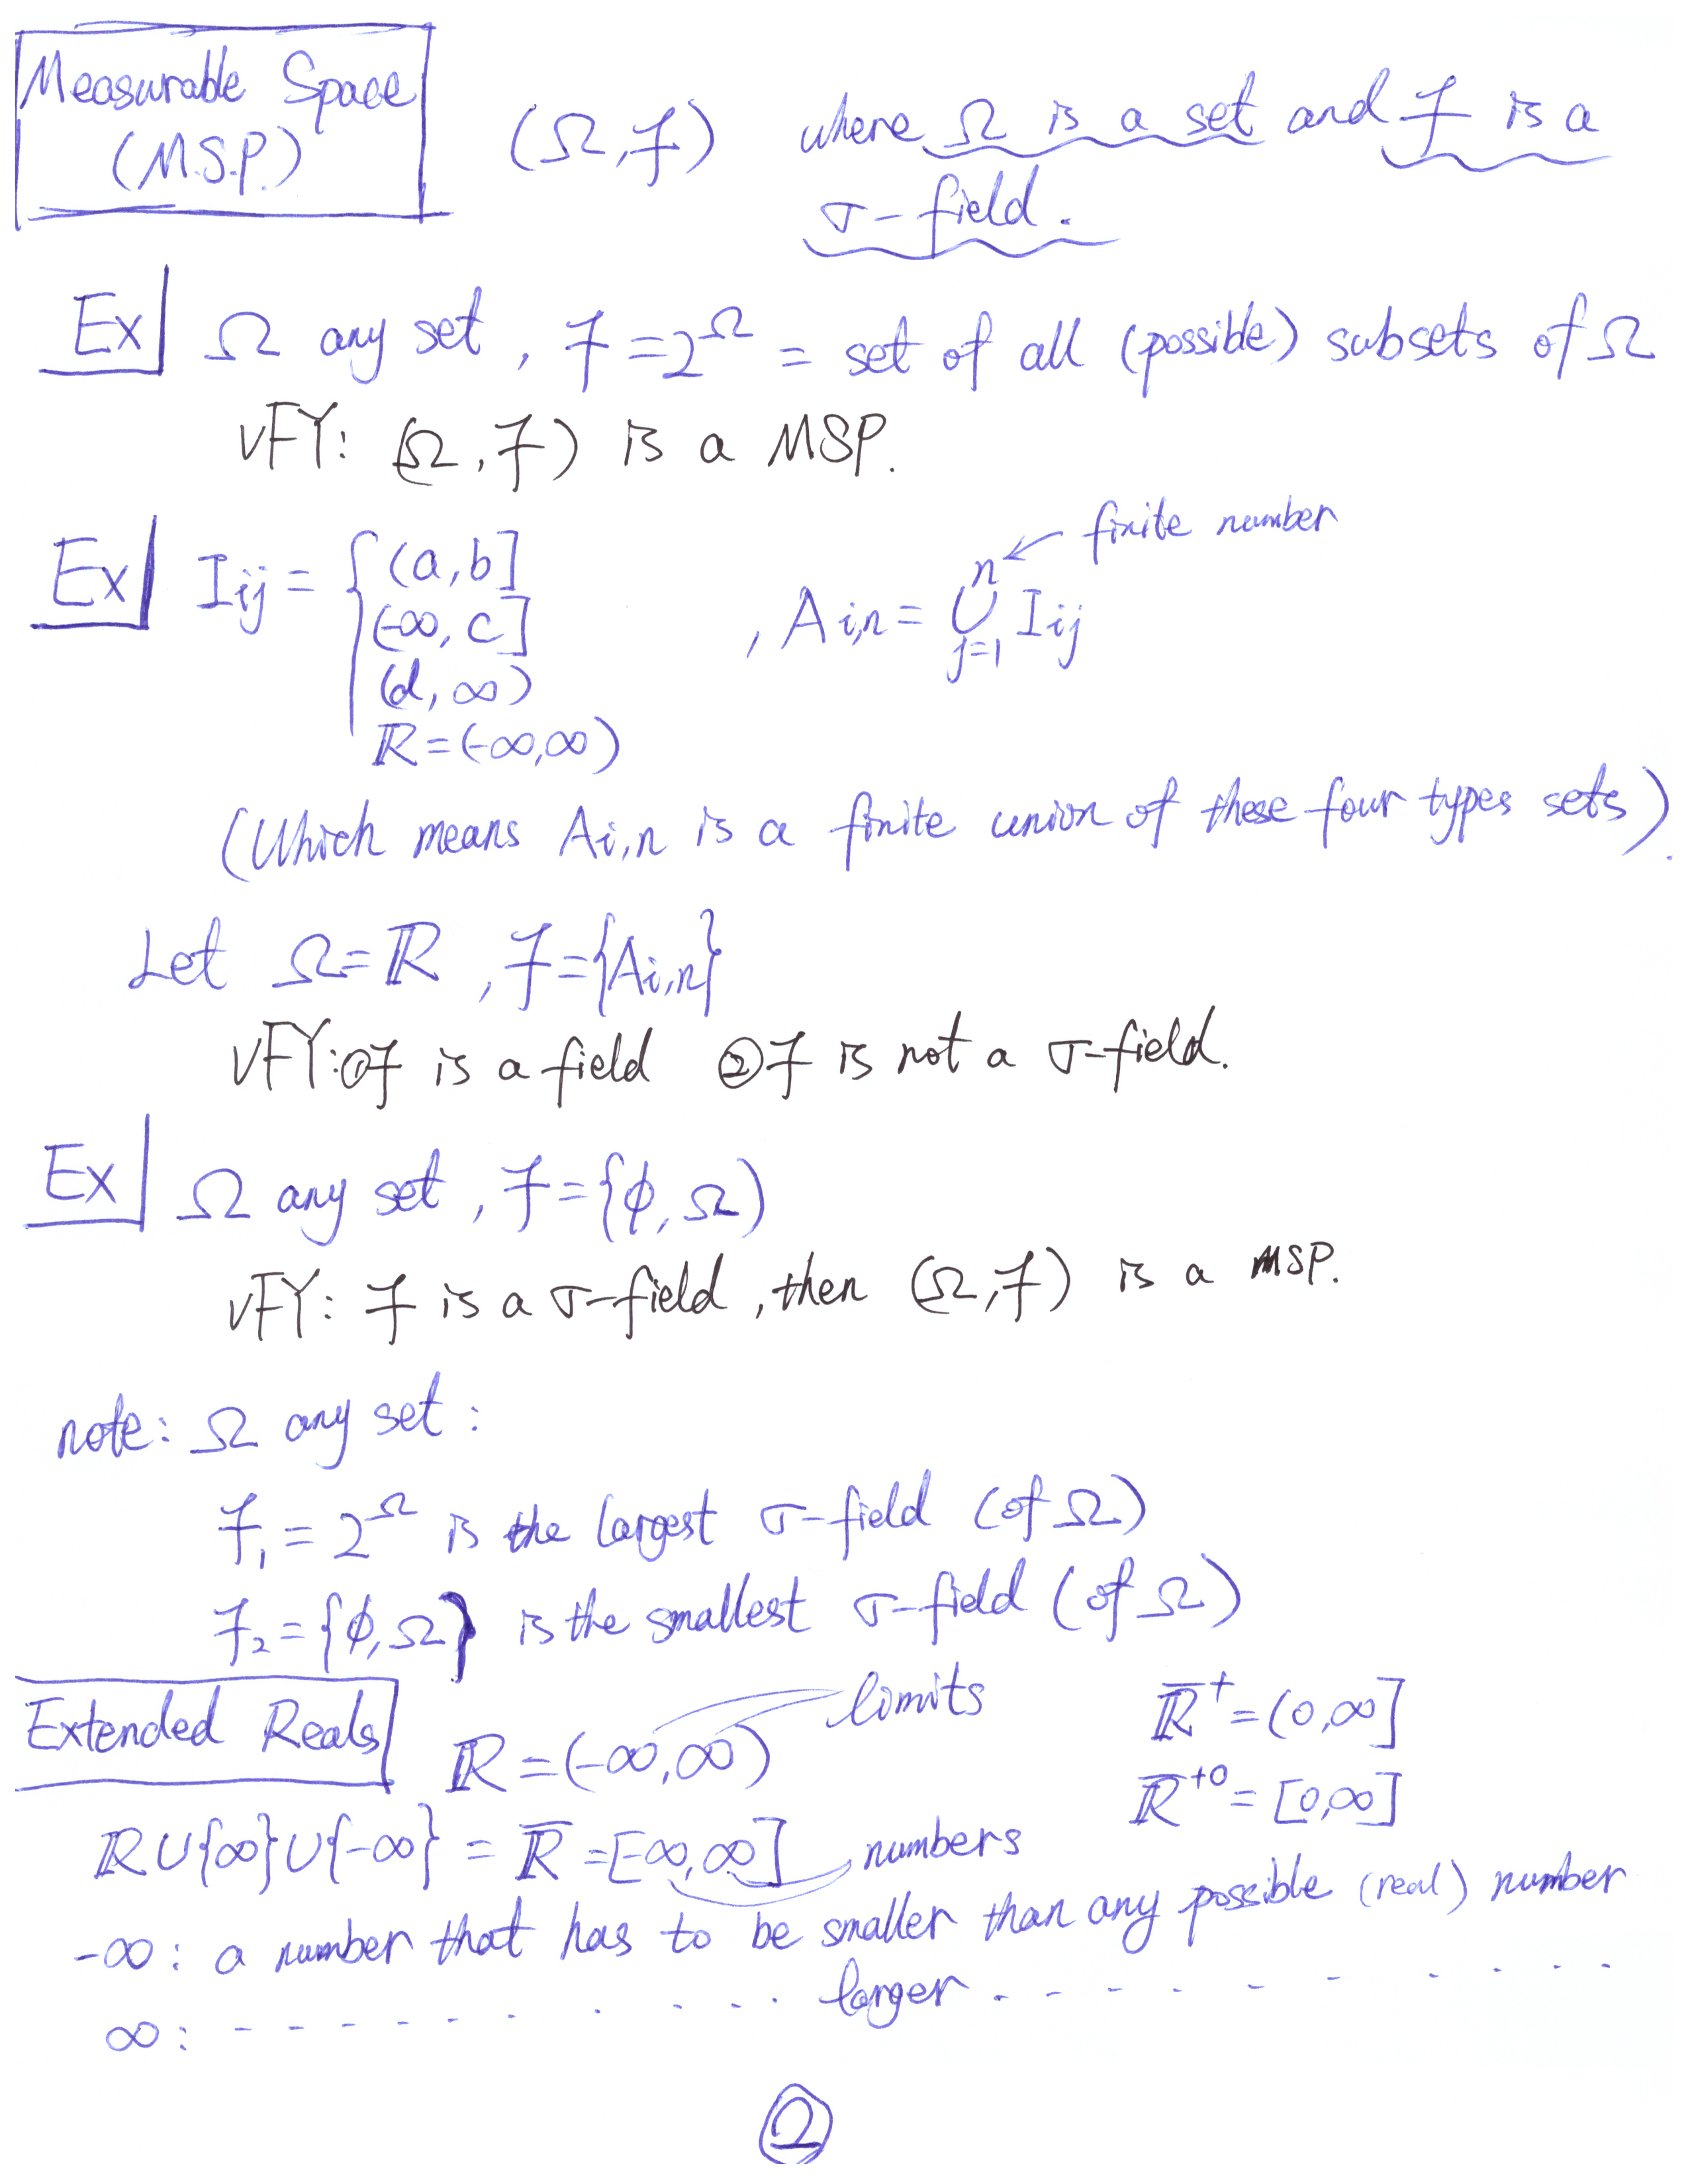 Measurable Space
(M.S.P.)
(Ω, F) where Ω is a set and F is a
σ-field.
Ex Ω any set, F = 2^Ω = set of all (possible) subsets of Ω
VFY: (Ω, F) is a MSP.
finite number
Ex Iij = { (a, b]
(-∞, c]
(d, ∞)
ℝ = (-∞, ∞)
, Ai,n = ∪_{j=1}^{n} Iij
(Which means Ai,n is a finite union of these four types sets).
Let Ω = ℝ, F = {Ai,n}
VFY: ① F is a field ② F is not a σ-field.
Ex Ω any set, F = {ϕ, Ω)
VFY: F is a σ-field, then (Ω, F) is a MSP.
note: Ω any set:
F₁ = 2^Ω is the largest σ-field (of Ω)
F₂ = {ϕ, Ω} is the smallest σ-field (of Ω)
Extended Reals
ℝ = (-∞, ∞) limits
ℝ̅⁺ = (0, ∞]
ℝ̅⁺⁰ = [0, ∞]
ℝ ∪ {∞} ∪ {-∞} = ℝ̅ = [-∞, ∞] numbers
-∞: a number that has to be smaller than any possible (real) number
∞: - - - - - - - - - - larger - - - - - - - - - -
2